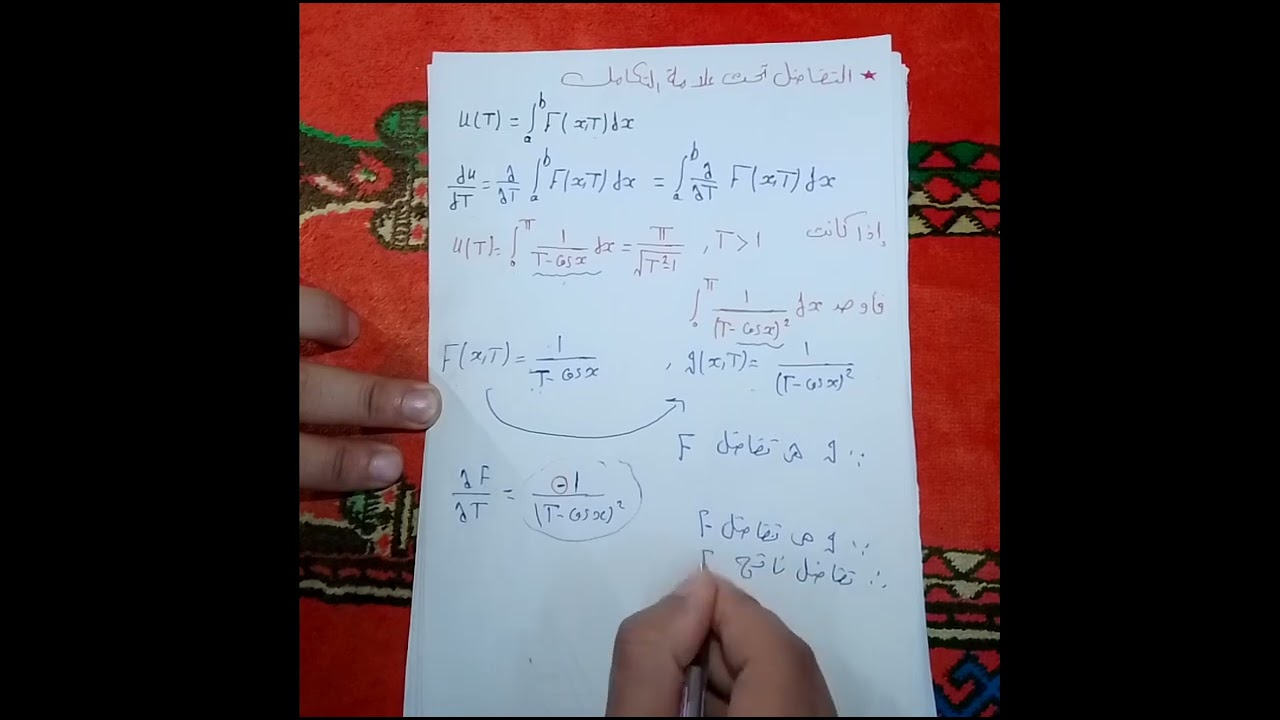 ★ التفاضل تحت علامة التكامل
u(T) = ∫_a^b F(x,T) dx
du/dT = ∂/∂T ∫_a^b F(x,T) dx = ∫_a^b ∂/∂T F(x,T) dx
إذا كانت u(T) = ∫_0^π 1/(T - cos x) dx = π/√(T²-1) , T > 1
فأوجد ∫_0^π 1/(T - cos x)² dx
F(x,T) = 1/(T - cos x) , g(x,T) = 1/(T - cos x)²
∵ g هى تفاضل F
∂F/∂T = -1/(T - cos x)²
∵ g هى تفاضل F
∴ تفاضل ناتج F